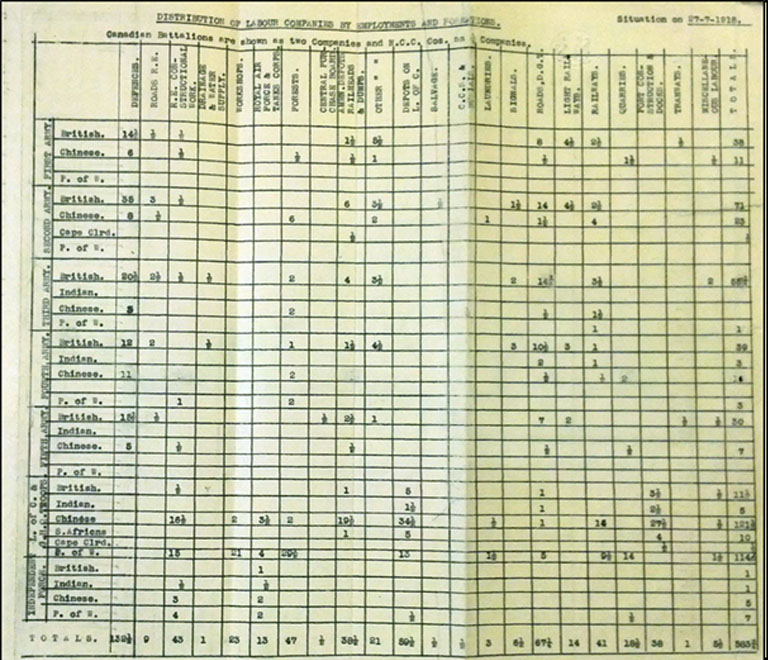 DISTRIBUTION OF LABOUR COMPANIES BY EMPLOYMENTS AND FORMATIONS.
Situation on 27-7-1918.
Canadian Battalions are shown as two Companies and N.C.C. Cos. as ½ Companies.
DEFENCES. ROADS R.E. R.E. CONSTRUCTIONAL WORK. DRAINAGE & WATER SUPPLY. WORKSHOPS. ROYAL AIR FORCE & TANKS CORPS. FORESTS. RAILHEADS & DUMPS. OTHER " " DEPOTS ON L. of C. SALVAGE. LAUNDRIES. SIGNALS. ROADS, D.G.T. LIGHT RAILWAYS. RAILWAYS. QUARRIES. PORT CONSTRUCTION & DOCKS. TRAMWAYS. MISCELLANEOUS LABOUR. TOTALS.
FIRST ARMY.
British. 14½ ½ ½ 1½ 5½ 8 4½ 2½ ½ 38
Chinese. 6 ½ ½ ½ 1 ½ 1½ ½ 11
P. of W.
SECOND ARMY.
British. 35 3 ½ 6 3½ ½ 1½ 14 4½ 2½ 71
Chinese. 8 ½ 6 2 1 1½ 4 23
Cape Clrd. ½ ½
P. of W.
THIRD ARMY.
British. 20½ 2½ ½ ½ 2 4 3½ 2 14½ 3½ 2
Indian.
Chinese. 5 2 ½ 1½
P. of W. 1 1
FOURTH ARMY.
British. 12 2 ½ 1 1½ 4½ 3 10½ 3 1 39
Indian. 2 1 3
Chinese. 11 2 ½ ½ 2
P. of W. 1 2 3
FIFTH ARMY.
British. ½ ½ 2½ 1 7 2 ½ ½ 30
Indian.
Chinese. 5 ½ ½ ½ ½ 7
P. of W.
L. of C. &
British. ½ 1 5 1 3½ ½ 11½
Indian. 1½ 1 2½ 5
Chinese 16½ 2 3½ 2 19½ 34½ ½ 1 14 27½ ½ 121½
S.Africans 1 5 4 10
Cape Clrd. ½
P. of W. 15 21 4 29½ 13 1½ 5 9½ 14 1½
INDEPENDENT FORCE.
British. 1 1
Indian. ½ ½ 1
Chinese. 3 2 5
P. of W. 4 2 ½ ½ 7
TOTALS. 132½ 9 43 1 23 13 47 ½ 38½ 21 59½ ½ ½ 3 6½ 67½ 14 41 18½ 38 1 5½